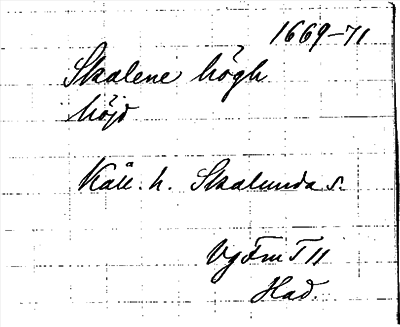 1669-71
Skalene högh
höjd
Kåll. h. Skalunda s.
VgFmT II
Had.